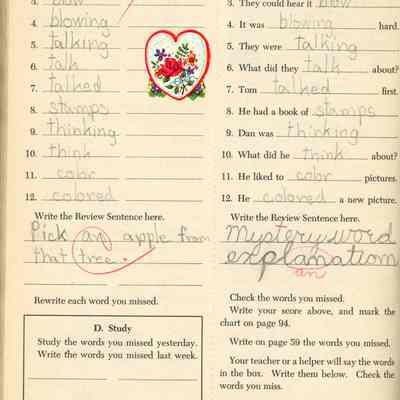 3. blow
4. blowing
5. talking
6. talk
7. talked
8. stamps
9. thinking
10. think
11. color
12. colored
Write the Review Sentence here.
Pick an apple from
that tree.
Rewrite each word you missed.
D. Study
Study the words you missed yesterday.
Write the words you missed last week.
3. They could hear it blow
4. It was blowing hard.
5. They were talking
6. What did they talk about?
7. Tom talked first.
8. He had a book of stamps
9. Dan was thinking
10. What did he think about?
11. He liked to color pictures.
12. He colored a new picture.
Write the Review Sentence here.
Mystery word
explanation
an
Check the words you missed.
Write your score above, and mark the
chart on page 94.
Write on page 59 the words you missed.
Your teacher or a helper will say the words
in the box. Write them below. Check the
words you miss.